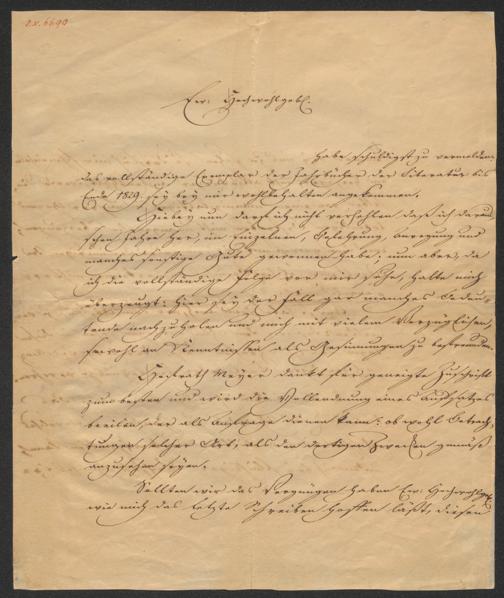 I.N. 6690
Ew: Hochwohlgeb.
habe schuldigst zu vermelden
das vollständige Exemplar der Jahrbücher der Literatur bis
Ende 1829. sey bey mir wohlbehalten angekommen.
Hiebey nun darf ich nicht verhehlen daß ich daraus
schon Jahre her, im Einzelnen, Belehrung, Anregung und
manches sonstige Gute gewonnen habe; nun aber, da
ich die vollständige Folge vor mir sehe, halte mich
überzeugt: hier sey der Fall gar manches Bedeu-
tende nachzuholen und mich mit vielem Vorzüglichen,
sowohl an Kenntnissen als Gesinnungen zu befreunden.
Hofrath Meyer dankt für geneigte Zuschrift
zum besten und wird die Vollendung eines Aufsatzes
beeilen, der als Anfrage dienen kann: ob wohl Betrach-
tungen solcher Art, als den dortigen Zwecken gemäß
anzusehen seyen.
Sollten wir das Vergnügen haben Ew: Hochwohlgeb.
wie mich das letzte Schreiben hoffen läßt, diesen